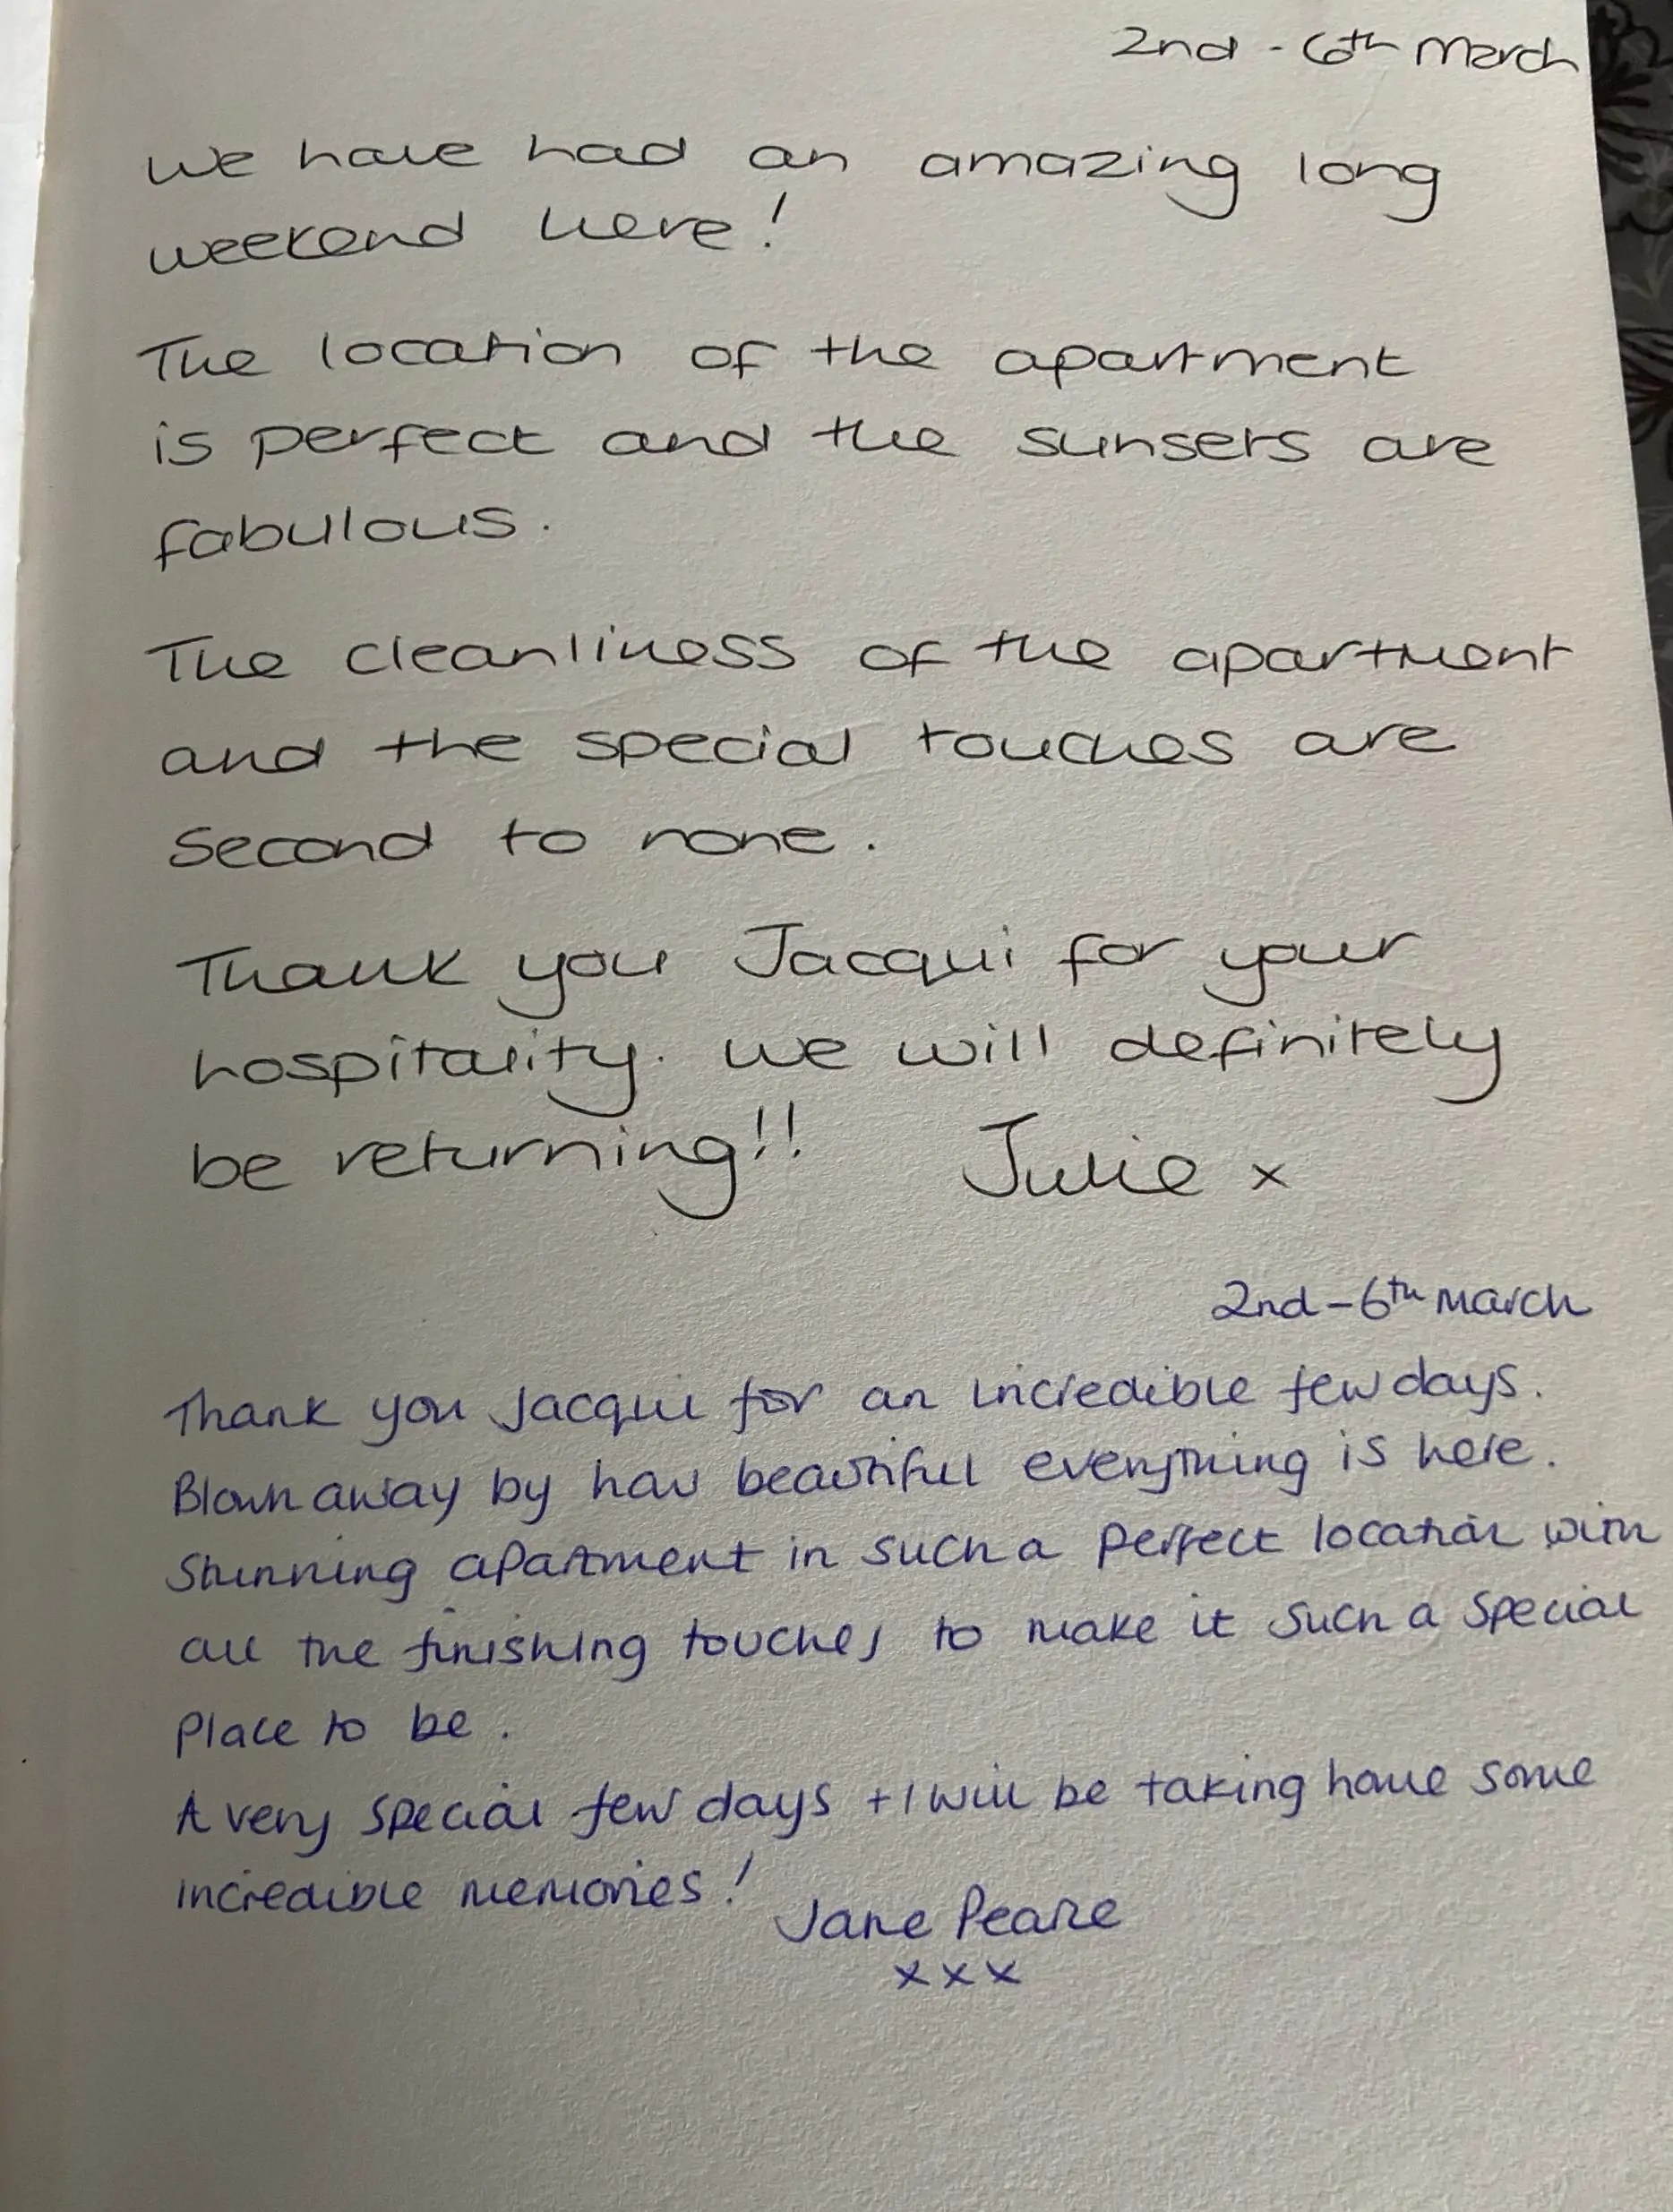 2nd - 6th March
We have had an amazing long
weekend here!
The location of the apartment
is perfect and the sunsets are
fabulous.
The cleanliness of the apartment
and the special touches are
Second to none.
Thank you Jacqui for your
hospitality. We will definitely
be returning!!
Julie x
2nd-6th March
Thank you Jacqui for an incredible few days.
Blown away by how beautiful everything is here.
Stunning apartment in such a perfect location with
all the finishing touches to make it such a special
place to be.
A very special few days + I will be taking home some
incredible memories!
Jane
xxx